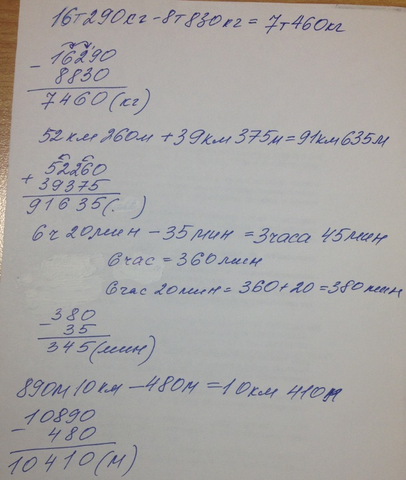 16т290кг-8т830кг=7т460кг
- 16290
8830
7460(кг)
52км260м+39км375м=91км635м
+ 52260
39375
91635(. )
6ч20мин-35мин=3часа 45мин
6час=360мин
6час 20мин=360+20=380мин
- 380
35
345(мин)
890м10км-480м=10км 410м
- 10890
480
10410(м)